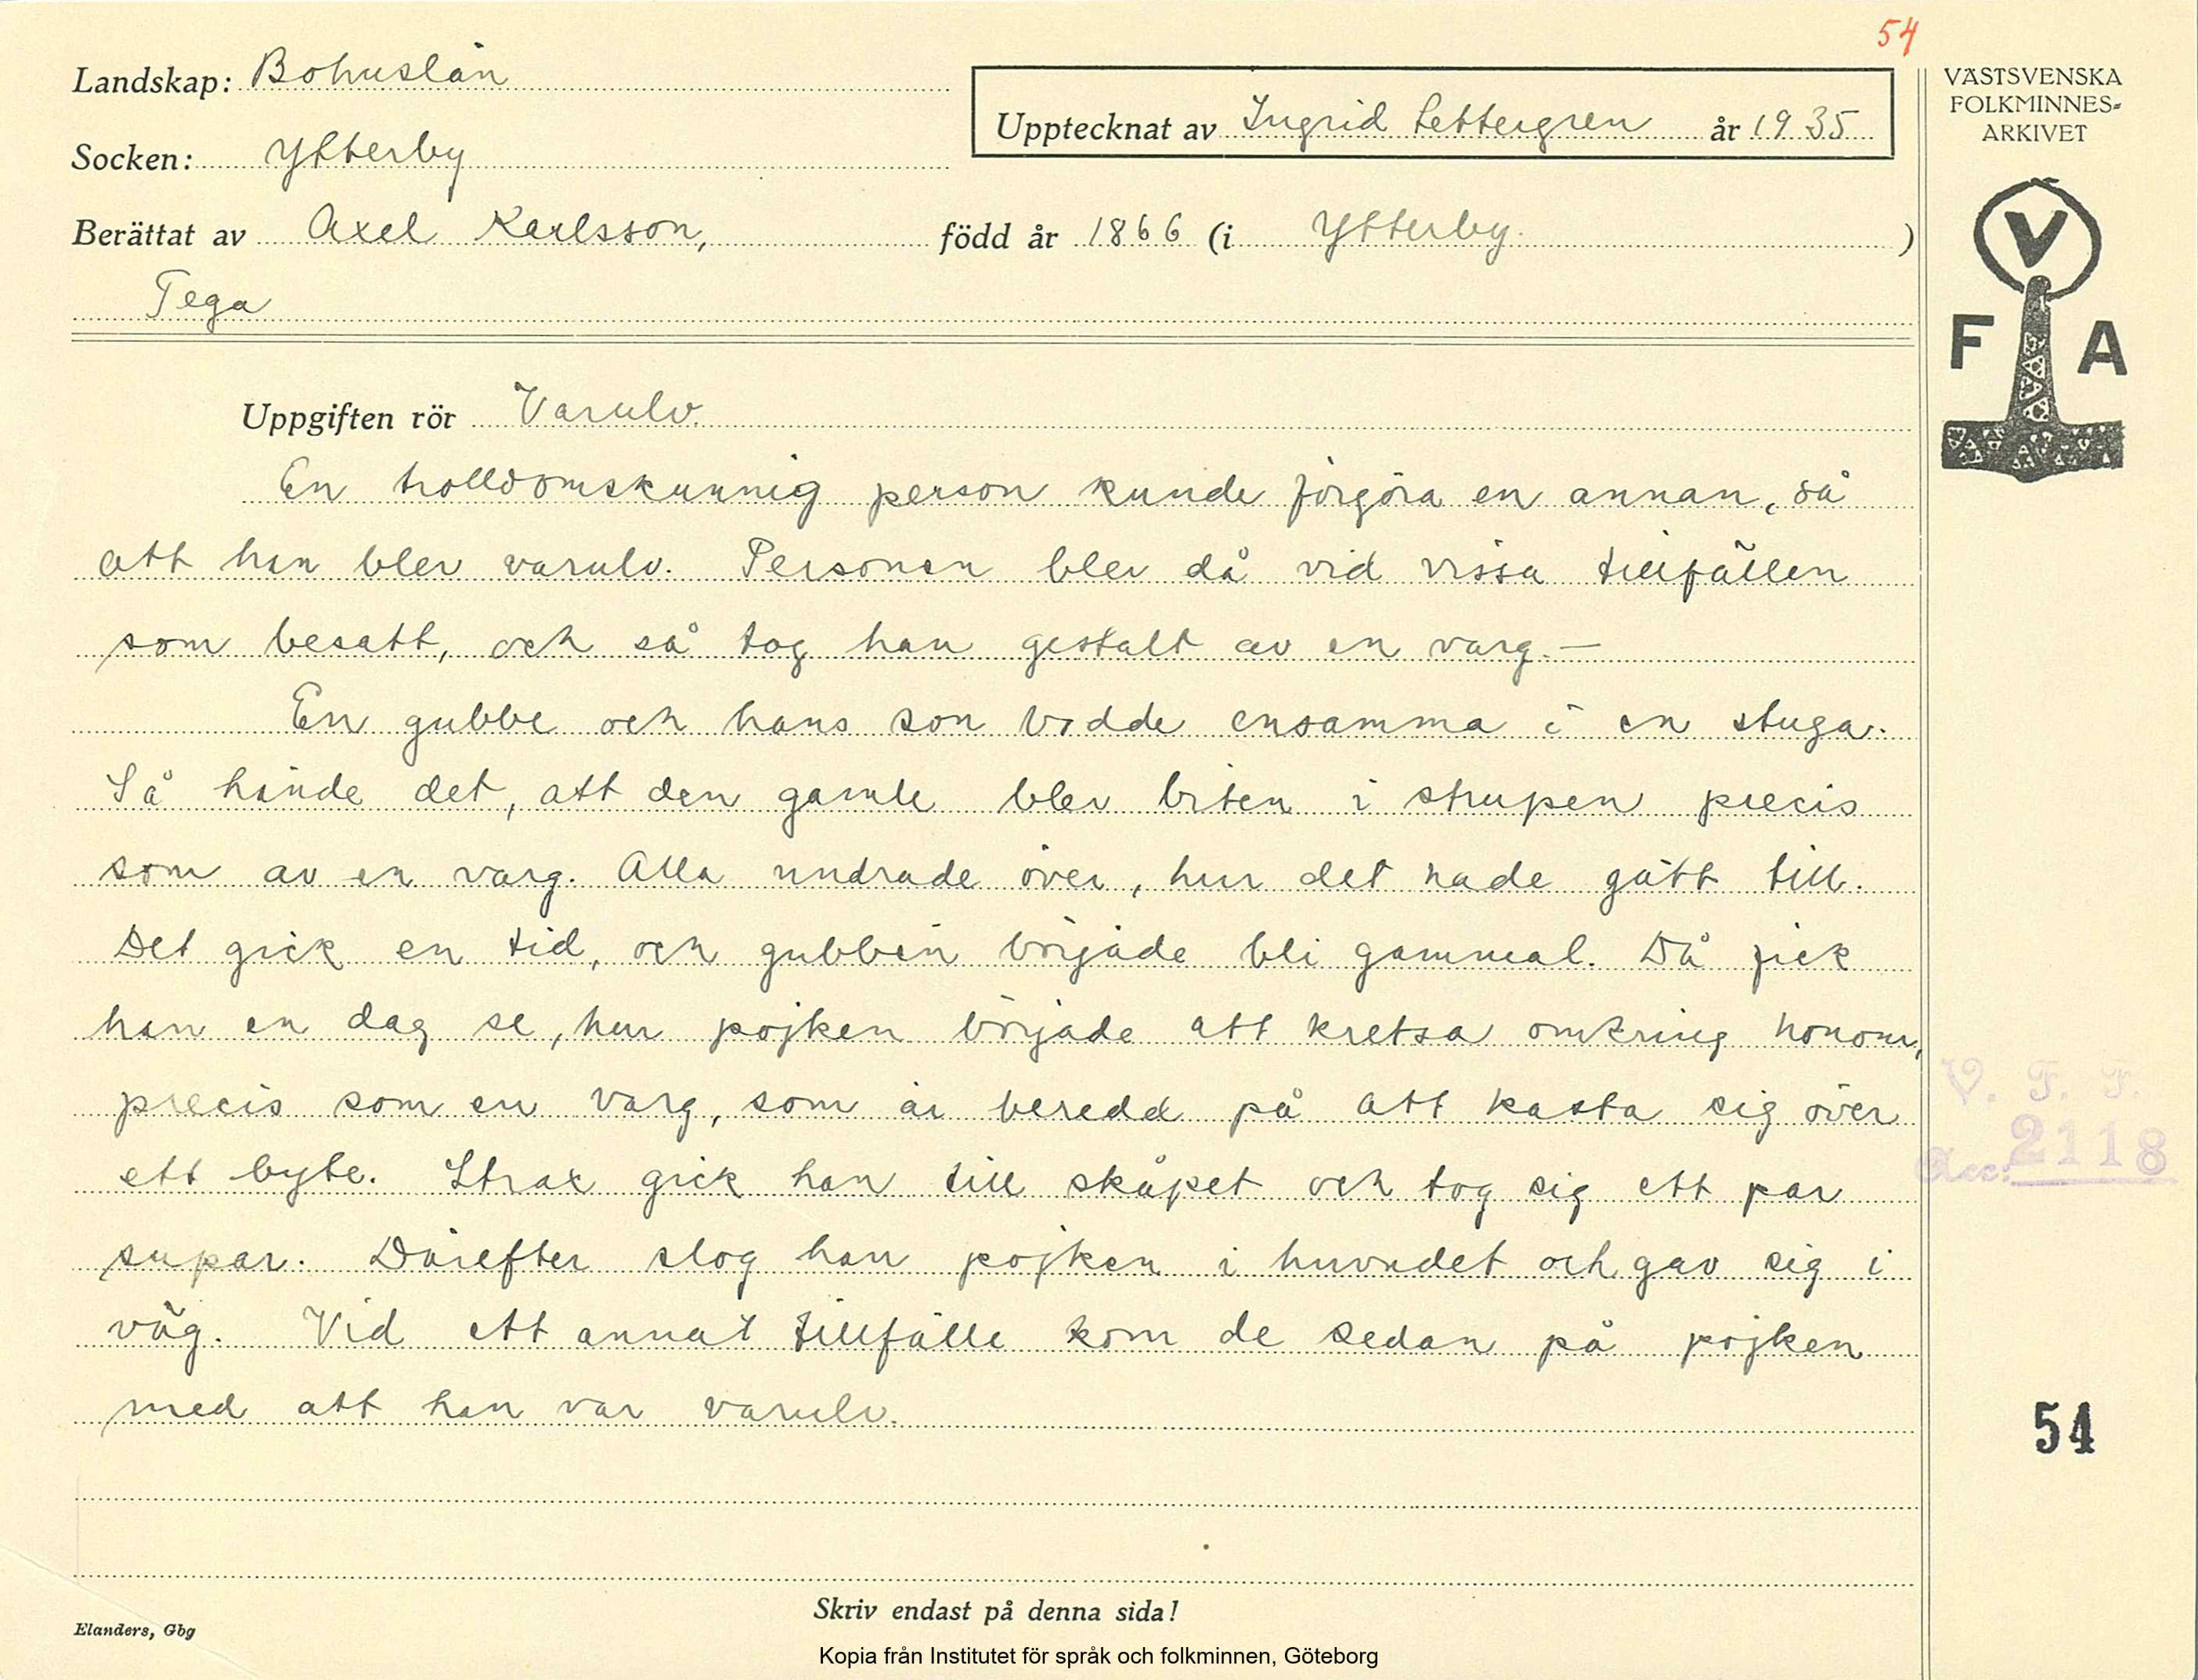 54
Landskap: Bohuslän
Socken: Ytterby
Upptecknat av Ingrid Settergren år 1935
Berättat av Axel Karlsson, född år 1866 (i Ytterby. )
Tega
Uppgiften rör Varulv.
En trolldomskunnig person kunde förgöra en annan, så
att han blev varulv. Personen blev då vid vissa tillfällen
som besatt, och så tog han gestalt av en varg.—
En gubbe och hans son bodde ensamma i en stuga.
Så hände det, att den gamle blev biten i strupen precis
som av en varg. Alla undrade över, hur det hade gått till.
Det gick en tid, och gubben började bli gammal. Då fick
han en dag se, hur pojken började att kretsa omkring honom,
precis som en varg, som är beredd på att kasta sig över
ett byte. Strax gick han till skåpet och tog sig ett par
supar. Därefter slog han pojken i huvudet och gav sig i
väg. Vid ett annat tillfälle kom de sedan på pojken
med att han var varulv.
Skriv endast på denna sida!
Elanders, Gbg
Kopia från Institutet för språk och folkminnen, Göteborg
VÄSTSVENSKA
FOLKMINNES-
ARKIVET
V
F A
V. F. F.
Acc: 2118
54